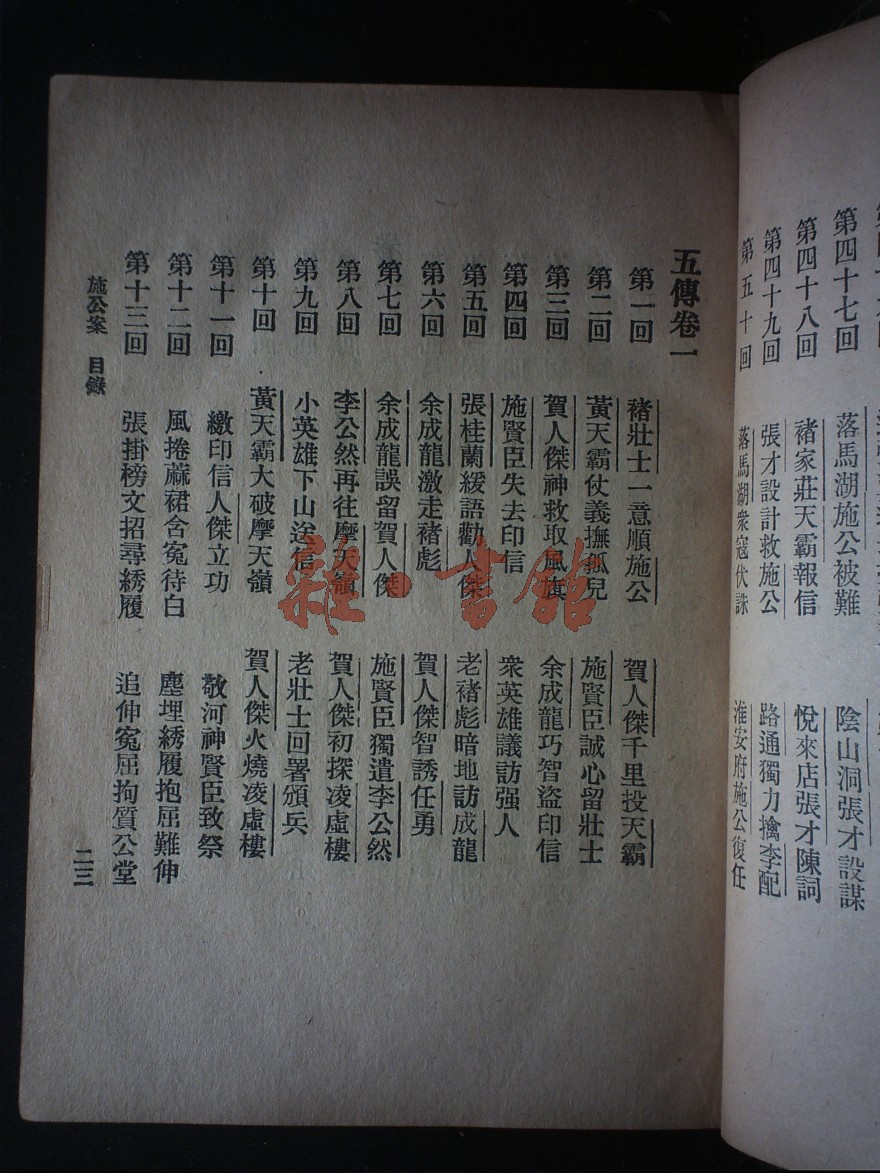 第四十七回 落馬湖施公被難 陰山洞張才設謀
第四十八回 褚家莊天霸報信 悅來店張才陳詞
第四十九回 張才設計救施公 路通獨力擒李配
第五十回 落馬湖衆寇伏誅 淮安府施公復任
五傳卷一
第一回 褚壯士一意順施公 賀人傑千里投天霸
第二回 黃天霸仗義撫孤兒 施賢臣誠心留壯士
第三回 賀人傑神救取風旗 余成龍巧智盜印信
第四回 施賢臣失去印信 衆英雄議訪强人
第五回 張桂蘭緩語勸人傑 老褚彪暗地訪成龍
第六回 余成龍激走褚彪 賀人傑智誘任勇
第七回 余成龍誤留賀人傑 施賢臣獨遣李公然
第八回 李公然再往摩天嶺 賀人傑初探凌虛樓
第九回 小英雄下山送信 老壯士回署頒兵
第十回 黃天霸大破摩天嶺 賀人傑火燒凌虛樓
第十一回 繳印信人傑立功 敬河神賢臣致祭
第十二回 風捲蔴裙含寃待白 塵埋綉履抱屈難伸
第十三回 張掛榜文招尋綉履 追伸寃屈拘質公堂
施公案 目錄
二三
雜·書館